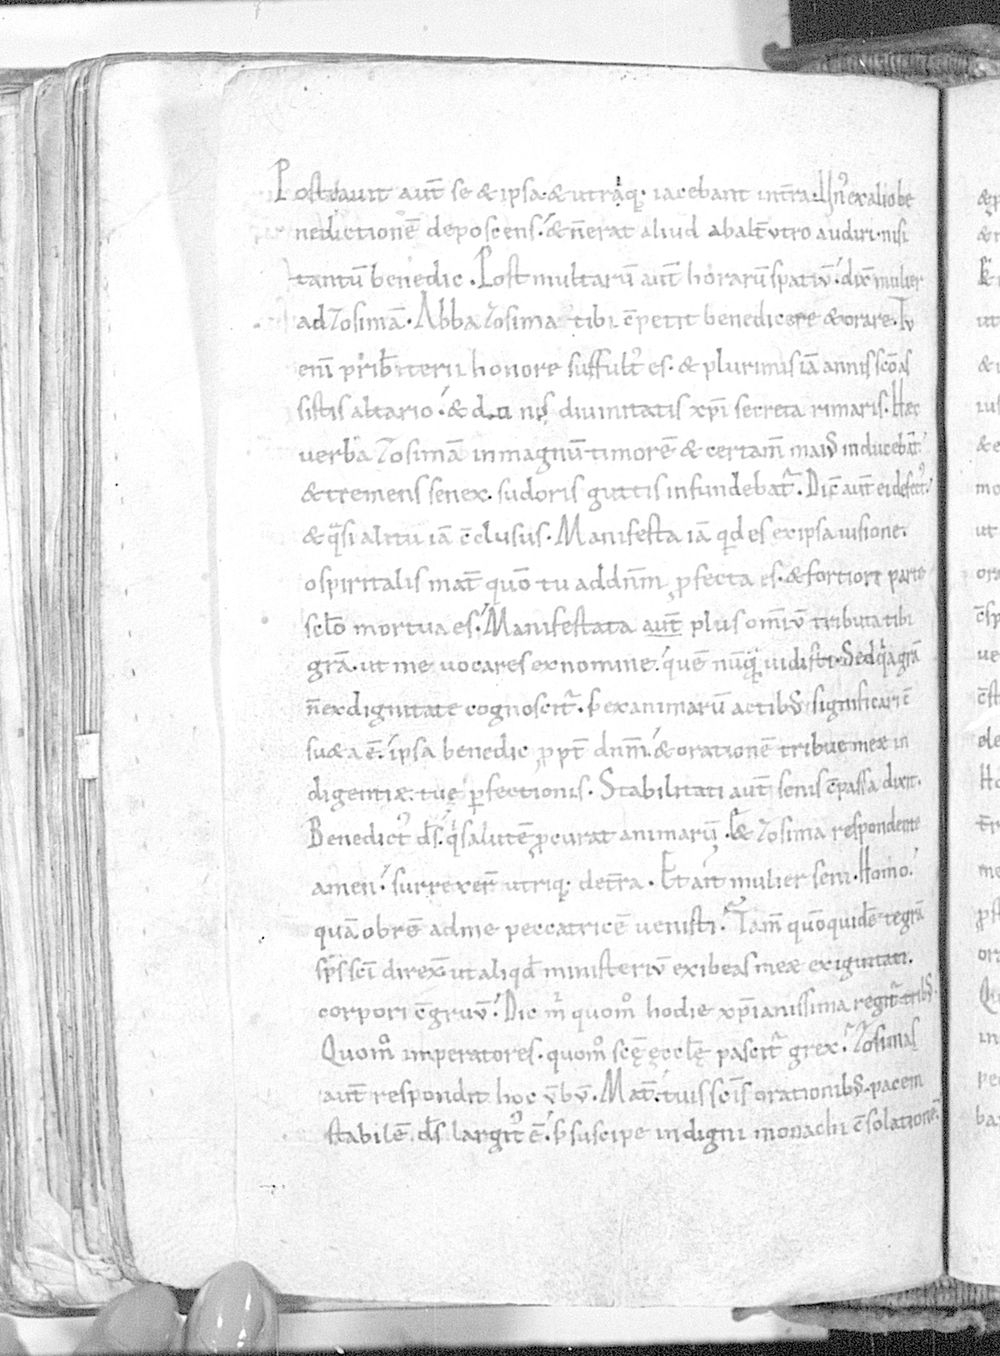 Postrauit aut̄ se & ipsa. & utraq;. iacebant int̄ra. Un' ex alio be
nedictionē deposcens. & n̄ erat aliud ab alt̄utro audiri. nisi
tantū benedic. Post multarū aut̄ horarū spatiū. dix̄ mulier
ad Zosimā. Abba Zosima tibi c̄petit benedicere & orare. Tu
enī pr̄ib̄iterii honore suffult' es. & plurimis iā annis sc̄o as
sistis altario. & donis divinitatis xp̄i secreta rimaris. Haec
verba Zosimā in magnū timorē & certam̄ maius inducebat̄.
& tremens senex. sudoris guttis infundebat̄. Dic̄ aut̄ ei defect'
& q̄si alitu iā c̄clusus. Manifesta iā qidē es ex ipsa uisione.
o spiritalis mat̄ quō tu ad dn̄m pfecta es. & fortiore parte
sclō mortua es. Manifestata aut̄ plus om̄iū tributa tibi
grā. ut me uocares ex nomine. quē nūq̄ vidisti. Sed q̄a grā
n̄ ex dignitate cognoscit̄. s; ex animarū actib; significari c̄
sueta ē. ipsa benedic ppt̄ dn̄m. & orationē tribue meæ in
digentiæ. tuę pfectionis. Stabilitati aut̄ senis c̄passa dixit.
Benedict' d̄s. q̄ salutē pcurat animarū. Et Zosima respondente
amen. surrexer̄ utriq;. de t̄ra. Et ait mulier seni. Homo.
quā ob rē ad me peccatricē venisti. Tam̄ quō quidē te grā
sp̄s sc̄i direx̄ ut aliqd̄ ministeriū exibeas meæ exiguitati.
corpori c̄gruū. Dic m̄ quom° hodie xp̄ianissima regit̄ trib;.
Quom° imperatores. quom° sc̄ę ęcclę̄ pascit̄ grex. Zosimas
aut̄ respondit hoc v̄bū. Mat̄. tuis sc̄īs orationib;. pacem
stabilē d̄s largit' ē. s; suscipe indigni monachi c̄solationē.